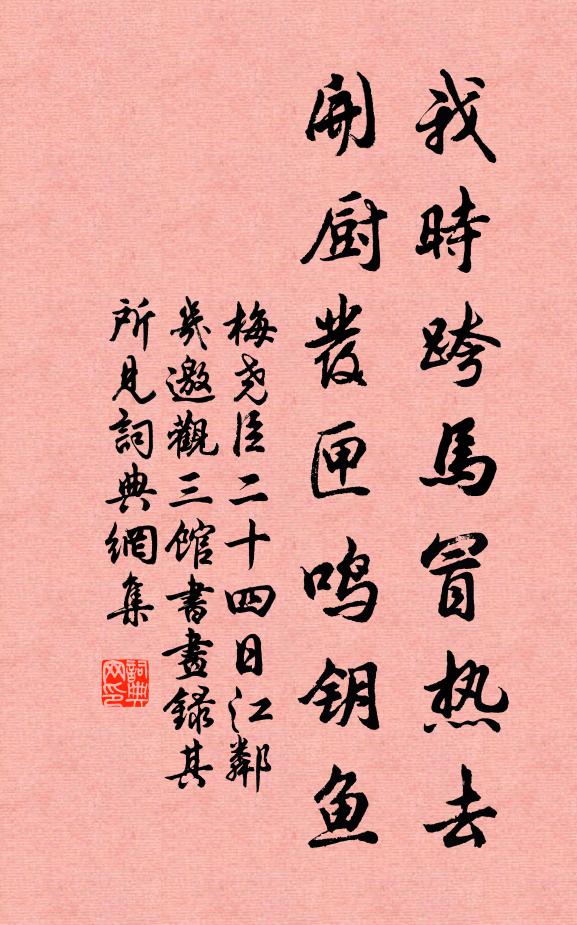 我時跨馬冒热去
開厨發匣鳴钥魚
梅尧臣二十四日江鄰
幾邀觀三館書畫錄其
所見詞典網集
詞典网印